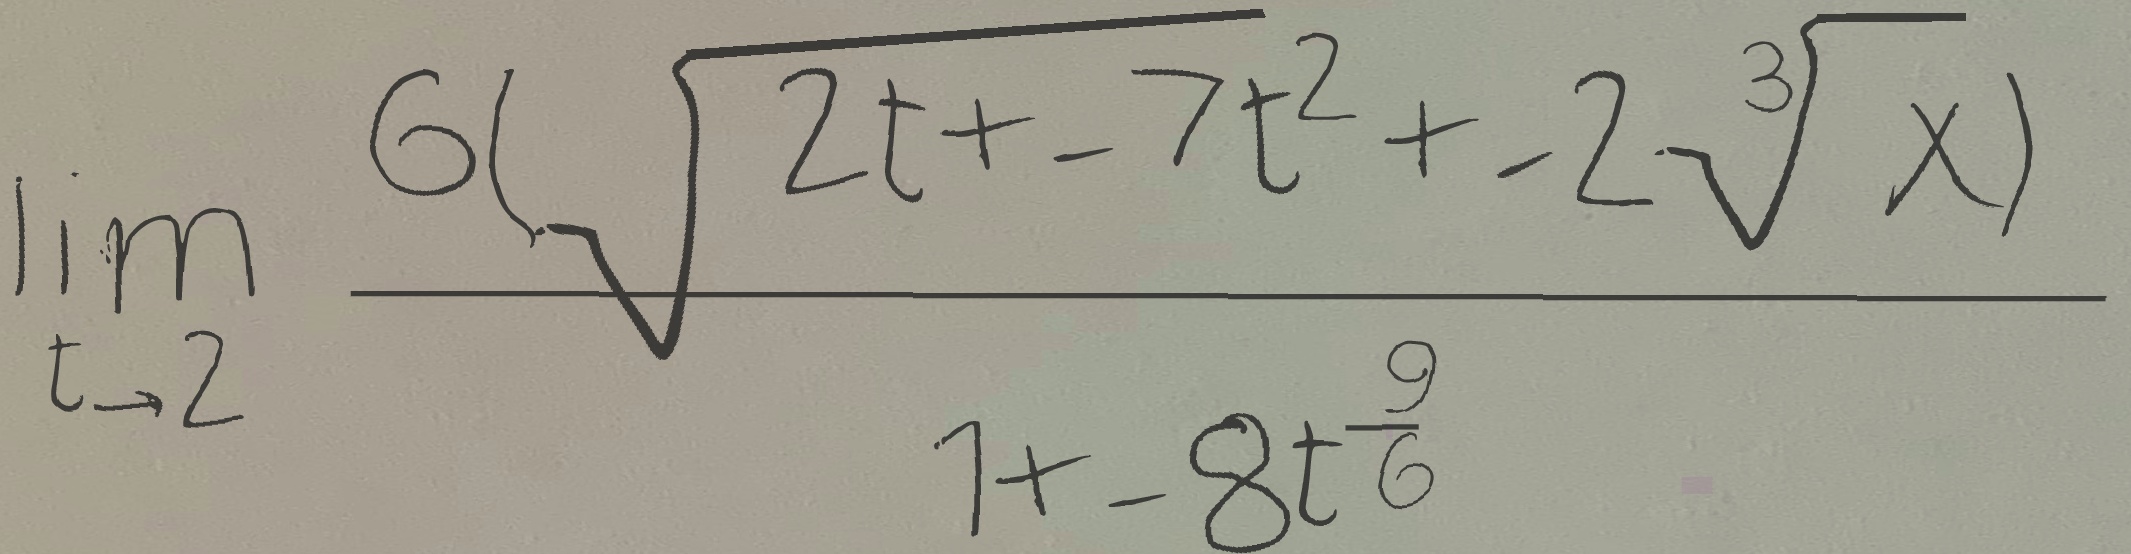 \lim_{t \to 2} \frac{6(\sqrt{2t + -7t^2} + -2\sqrt[3]{x})}{1 + -8t^{\frac{9}{6}}}